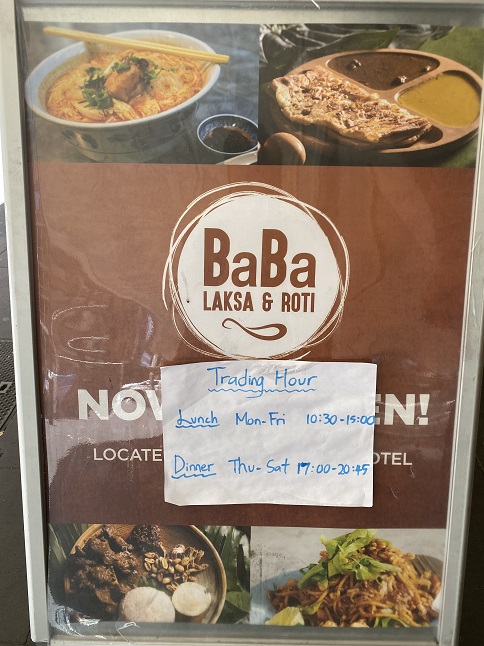 BaBa
LAKSA & ROTI
Trading Hour
Lunch Mon-Fri 10:30-15:00
Dinner Thu-Sat 17:00-20:45